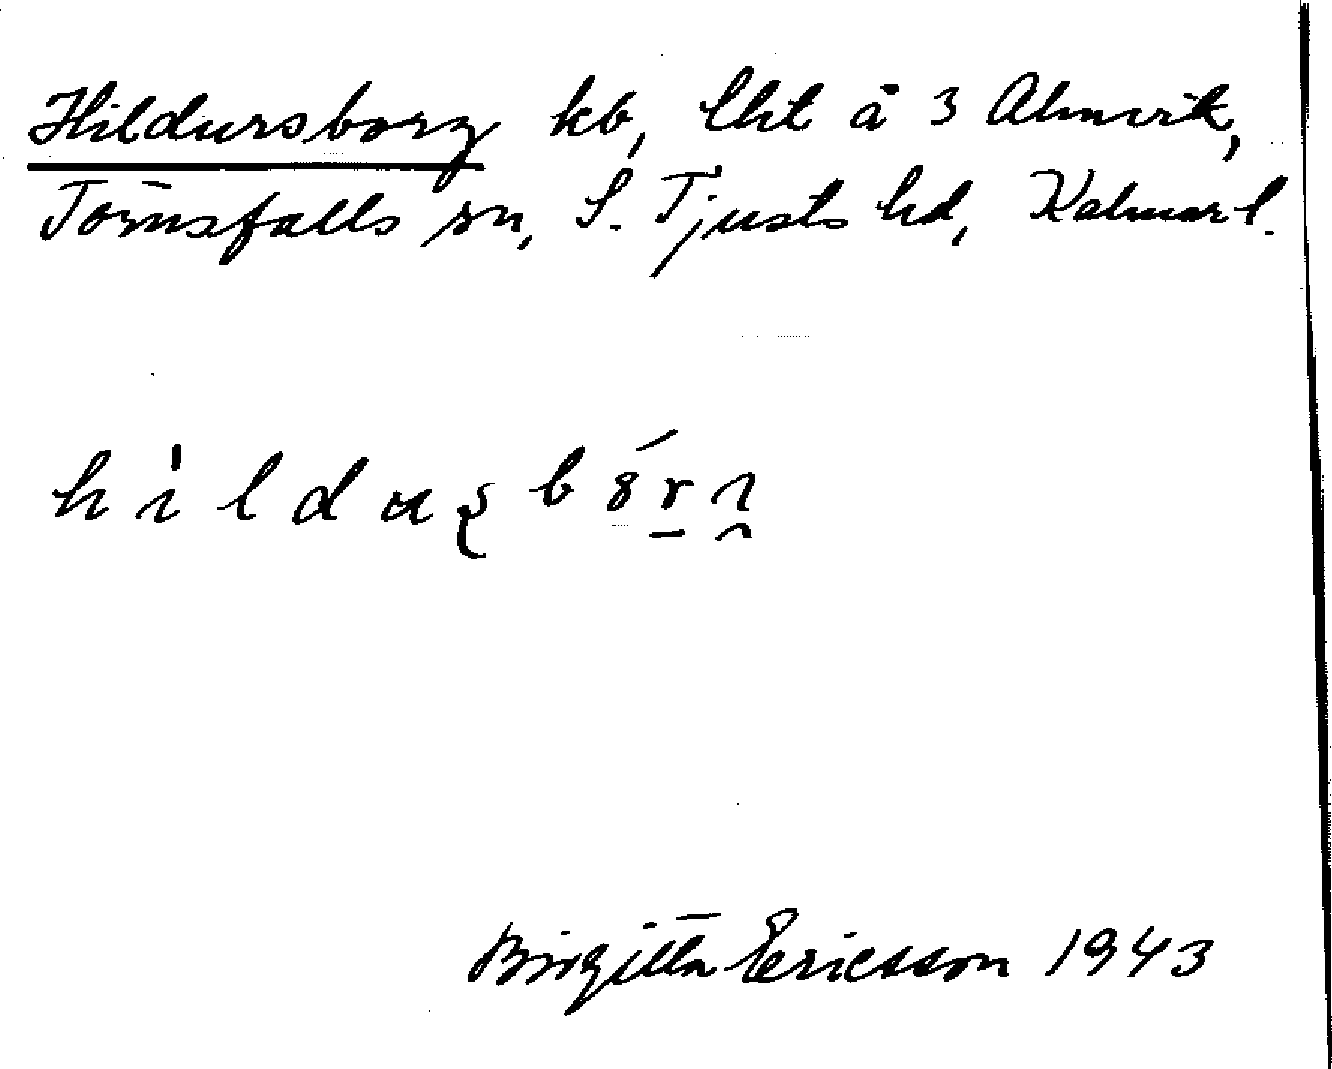 Hildursborg kb, lht å 3 Almvik,
Törnsfalls sn, S. Tjusts hd, Kalmar l.
Birgitta Ericsson 1943